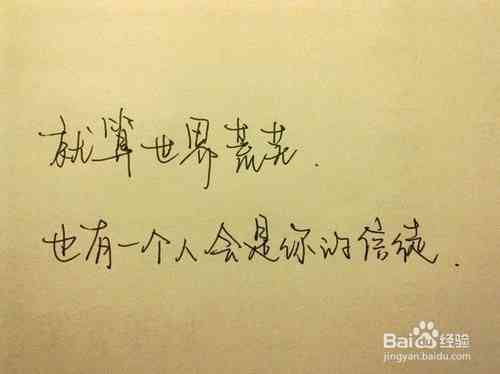 就算世界荒芜.
也有一个人会是你的信徒.
Baidu经验
jingyan.baidu.com